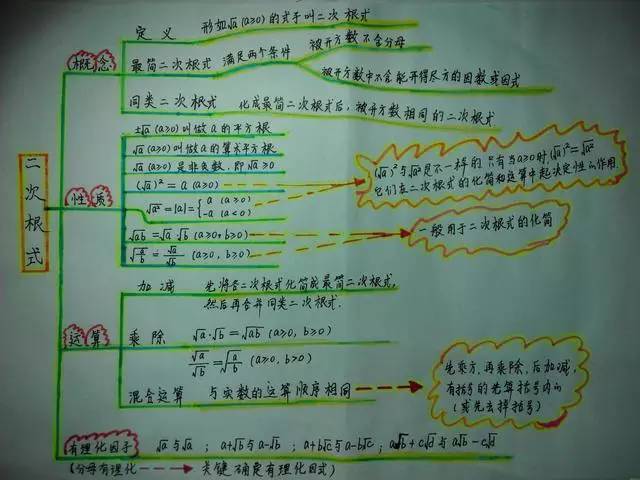 二次根式
概念
定义 形如√a (a≥0) 的式子叫二次根式
最简二次根式 满足两个条件
被开方数不含分母
被开方数中不含能开得尽方的因数或因式
同类二次根式 化成最简二次根式后,被开方数相同的二次根式
性质
±√a (a≥0) 叫做a的平方根
√a (a≥0) 叫做a的算术平方根
√a (a≥0) 是非负数,即√a ≥0
(√a)² = a (a≥0)
√a² = |a| = { a (a≥0)
-a (a<0)
(√a)² 与√a² 是不一样的 只有当a≥0时(√a)² = √a²
它们在二次根式的化简和运算中起决定性的作用
√ab = √a·√b (a≥0, b≥0)
√a/b = √a/√b (a≥0, b≥0)
一般用于二次根式的化简
运算
加减 先将各二次根式化简成最简二次根式,
然后再合并同类二次根式.
乘除 √a·√b = √ab (a≥0, b≥0)
√a/√b = √a/b (a≥0, b≥0)
混合运算 与实数的运算顺序相同
先乘方,再乘除,后加减,
有括号的先算括号内的
(或先去掉括号)
有理化因子 √a与√a ; a+√b与a-√b ; a+b√c与a-b√c ; a√b+c√d与a√b-c√d
(分母有理化 关键确定有理化因式)